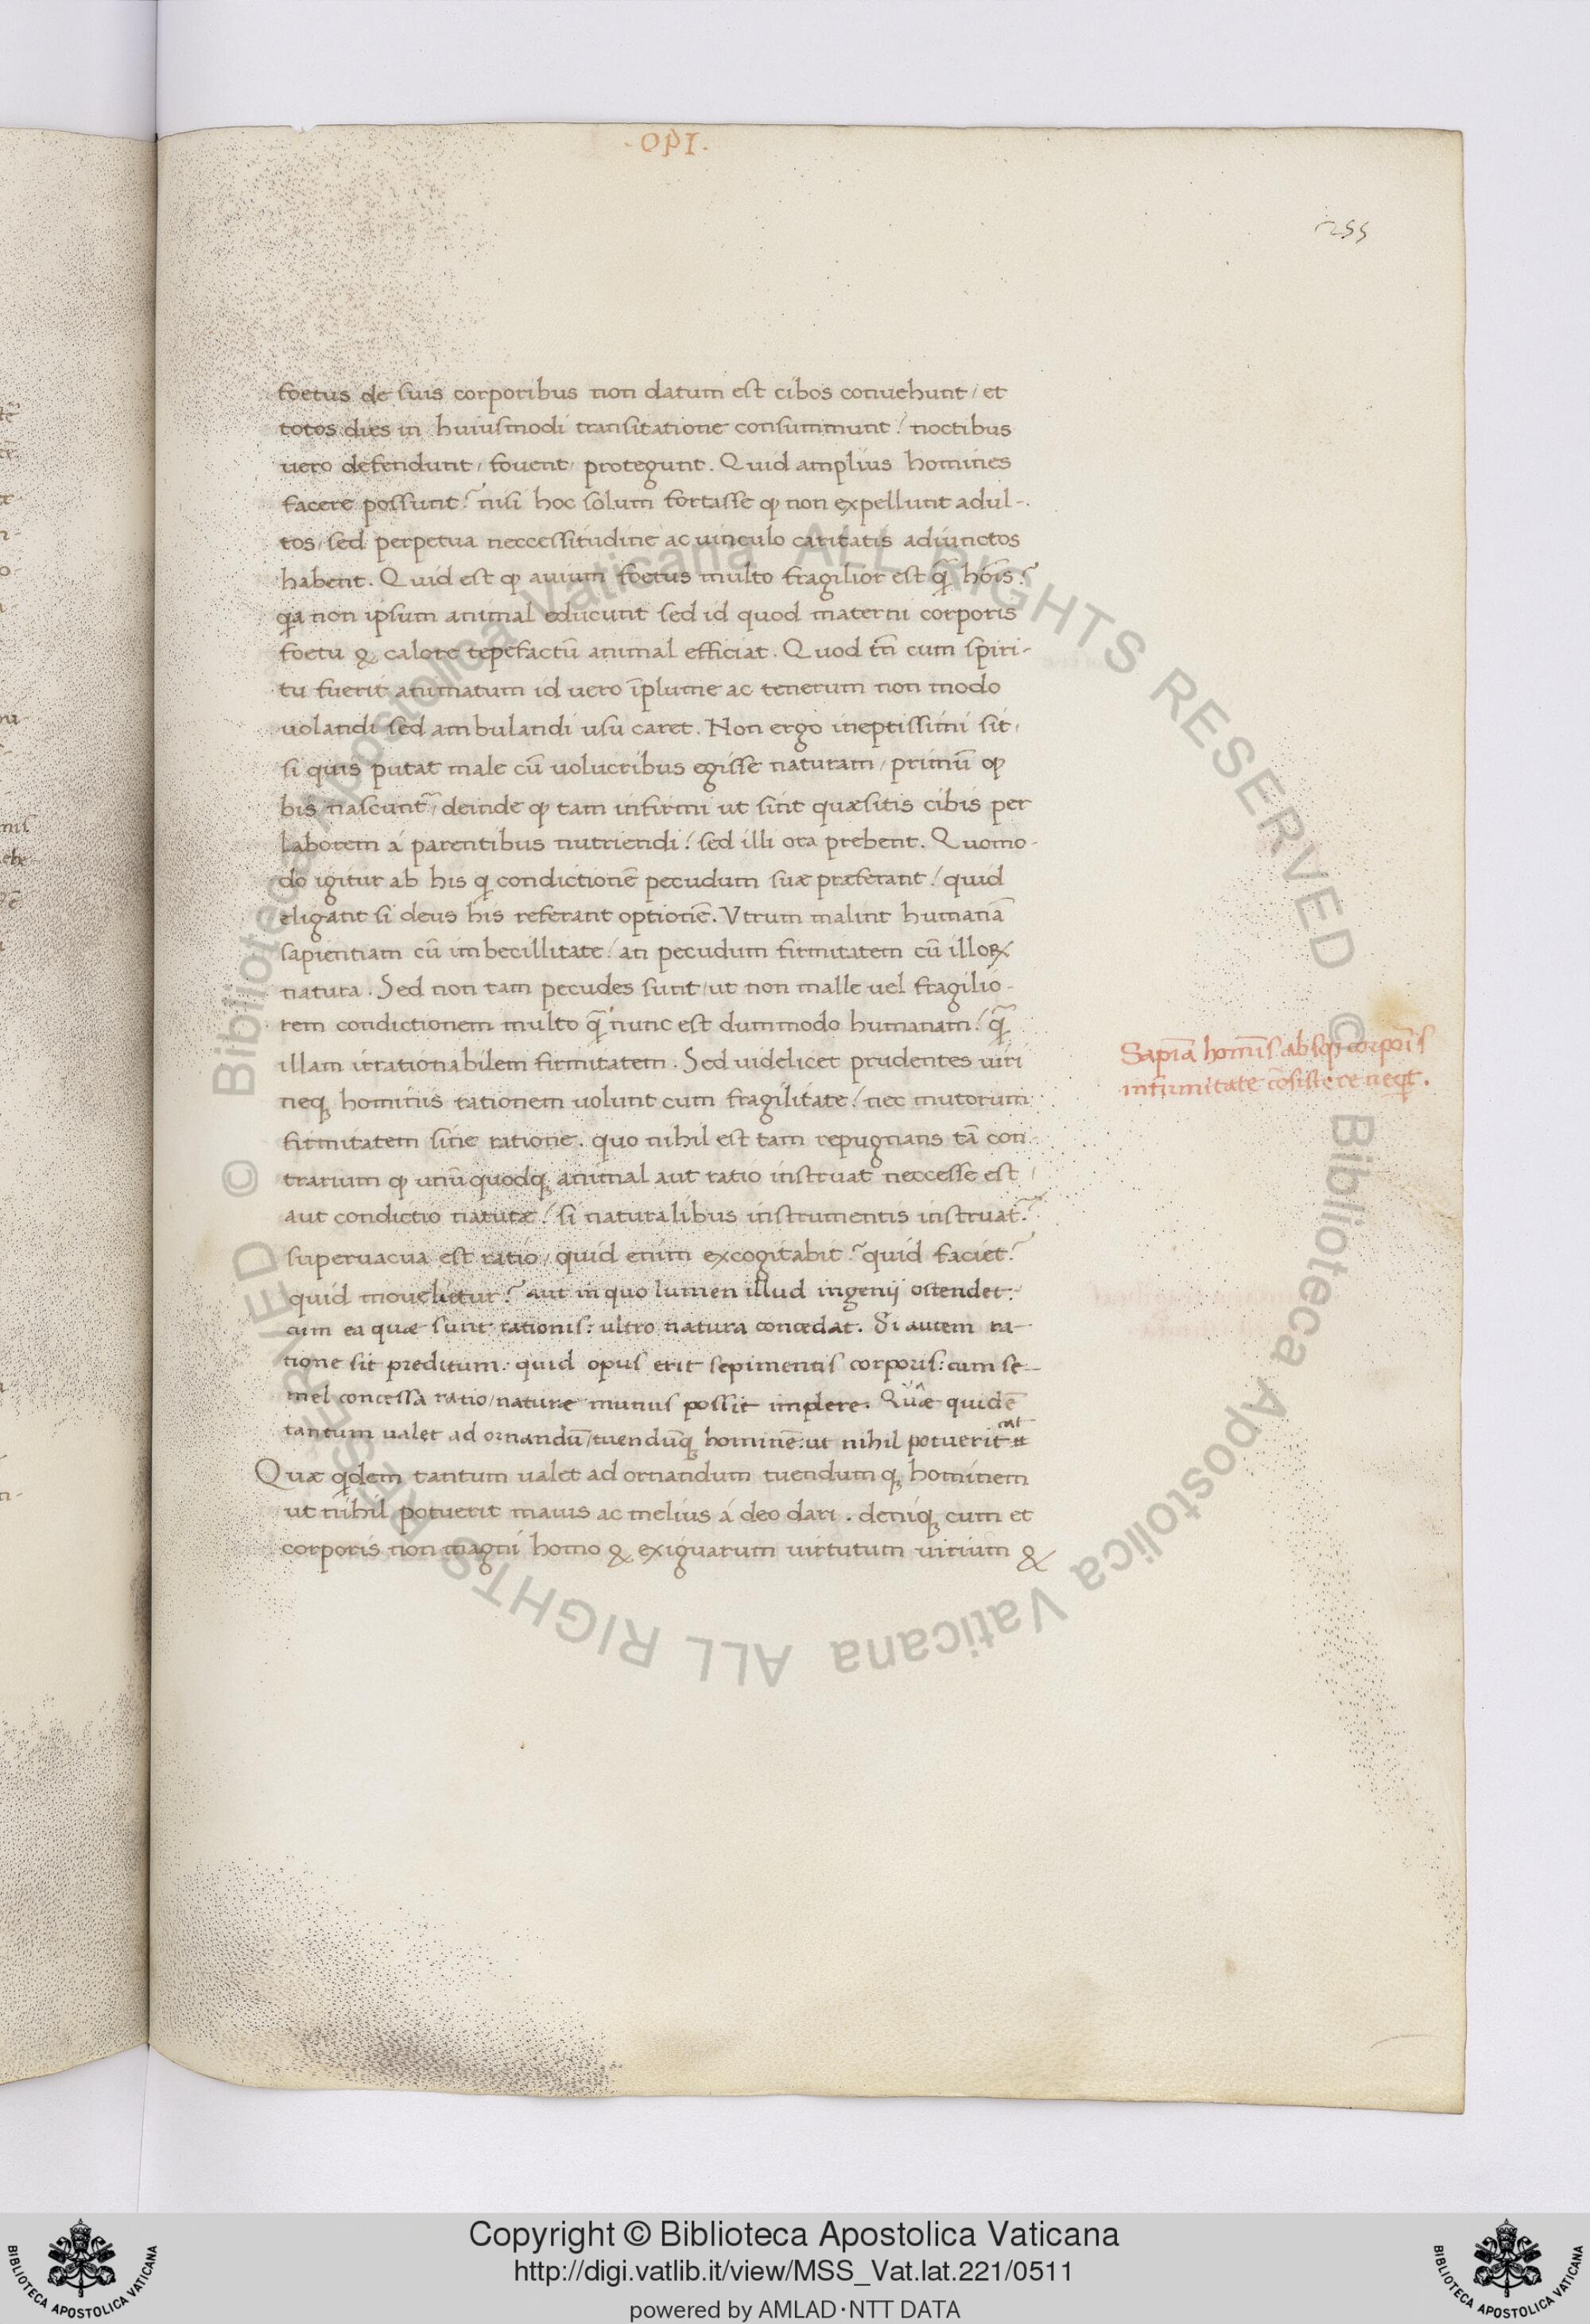 ·OPI·
255
foetus de suis corporibus non datum est cibos convehunt / et
totos dies in huiusmodi transitatione consummunt / noctibus
uero defendunt / fouent / protegunt. Quid amplius homines
facere possunt? nisi hoc solum fortasse ꝙ non expellunt adul-
tos / sed perpetua neccessitudine ac uinculo caritatis adiunctos
habent. Quid est ꝙ auium foetus multo fragilior est q̃ hoīs?
qa non ipsum animal educunt sed id quod materni corporis
foetu & calore tepefactū animal efficiat. Quod tñ cum spiri-
tu fuerit animatum id uero īplume ac tenerum non modo
uolandi sed ambulandi usu caret. Non ergo ineptissimi sit /
si quis putat male cū uolucribus egisse naturam / primū ꝙ
bis nascunt᷑ / deinde ꝙ tam infirmi ut sint quæsitis cibis per
laborem á parentibus nutriendi / sed illi ora prebent. Quomo-
do igitur ab his q condictionē pecudum suæ præferant / quid
eligant si deus his referant optionē. Vtrum malint humanā
sapientiam cū imbecillitate / an pecudum firmitatem cū illoꝝ
natura. Sed non tam pecudes sunt / ut non malle uel fragilio-
rem condictionem multo q̃ nunc est dummodo humanam / q̃
illam irrationabilem firmitatem. Sed uidelicet prudentes uiri
neqꝫ hominis rationem uolunt cum fragilitate / nec mutorum
firmitatem sine ratione. quo nihil est tam repugnans tā con
trarium ꝙ unūquodqꝫ animal aut ratio instruat neccesse est /
aut condictio naturæ / si naturalibus instrumentis instruat᷑.
superuacua est ratio / quid enim excogitabit? quid faciet?
quid molietur? aut in quo lumen illud ingenij ostendet:
cum ea quæ sunt rationis: ultro natura concedat. Si autem ra-
tione sit preditum: quid opus erit sepimentis corporis: cum se-
mel concessa ratio / naturæ munus possit implere. Quæ quidē
tantum ualet ad ornandū / tuendūqꝫ hominē: ut nihil potuerit
Quæ qdem tantum ualet ad ornandum tuendumqꝫ hominem
ut nihil potuerit maius ac melius á deo dari. deniqꝫ cum et
corporis non magni homo & exiguarum uirtutum uirium &
Sapīa homīs absqꝫ corpoīs
infirmitate cōsistere neqt.
© Biblioteca Apostolica Vaticana ALL RIGHTS RESERVED
© Biblioteca Apostolica Vaticana ALL RIGHTS RESERVED
Copyright © Biblioteca Apostolica Vaticana
http://digi.vatlib.it/view/MSS_Vat.lat.221/0511
powered by AMLAD·NTT DATA
BIBLIOTECA APOSTOLICA VATICANA
BIBLIOTECA APOSTOLICA VATICANA